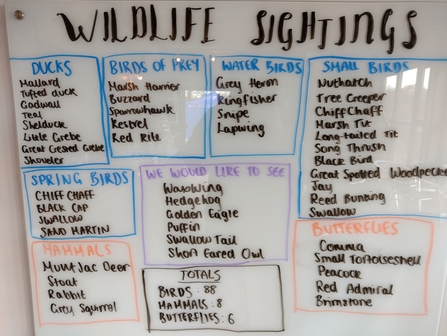 WILDLIFE SIGHTINGS
DUCKS
Mallard
Tufted duck
Gadwall
Teal
Shelduck
Little Grebe
Great Crested Grebe
Shoveler
BIRDS OF PREY
Marsh Harrier
Buzzard
Sparrowhawk
Kestrel
Red Kite
WATER BIRDS
Grey Heron
Kingfisher
Snipe
Lapwing
SMALL BIRDS
Nuthatch
Tree Creeper
Chiff Chaff
Marsh Tit
Long-tailed Tit
Song Thrush
Black Bird
Great Spotted Woodpecke
Jay
Reed Bunting
Swallow
SPRING BIRDS
CHIFF CHAFF
BLACK CAP
SWALLOW
SAND MARTIN
WE WOULD LIKE TO SEE
Waxwing
Hedgehog
Golden Eagle
Puffin
Swallow Tail
Short Eared Owl
MAMMALS
Munt Jac Deer
Stoat
Rabbit
Grey Squirrel
TOTALS
BIRDS : 88
MAMMALS : 8
BUTTERFLIES : 6
BUTTERFLIES
Comma
Small Tortoiseshell
Peacock
Red Admiral
Brimstone